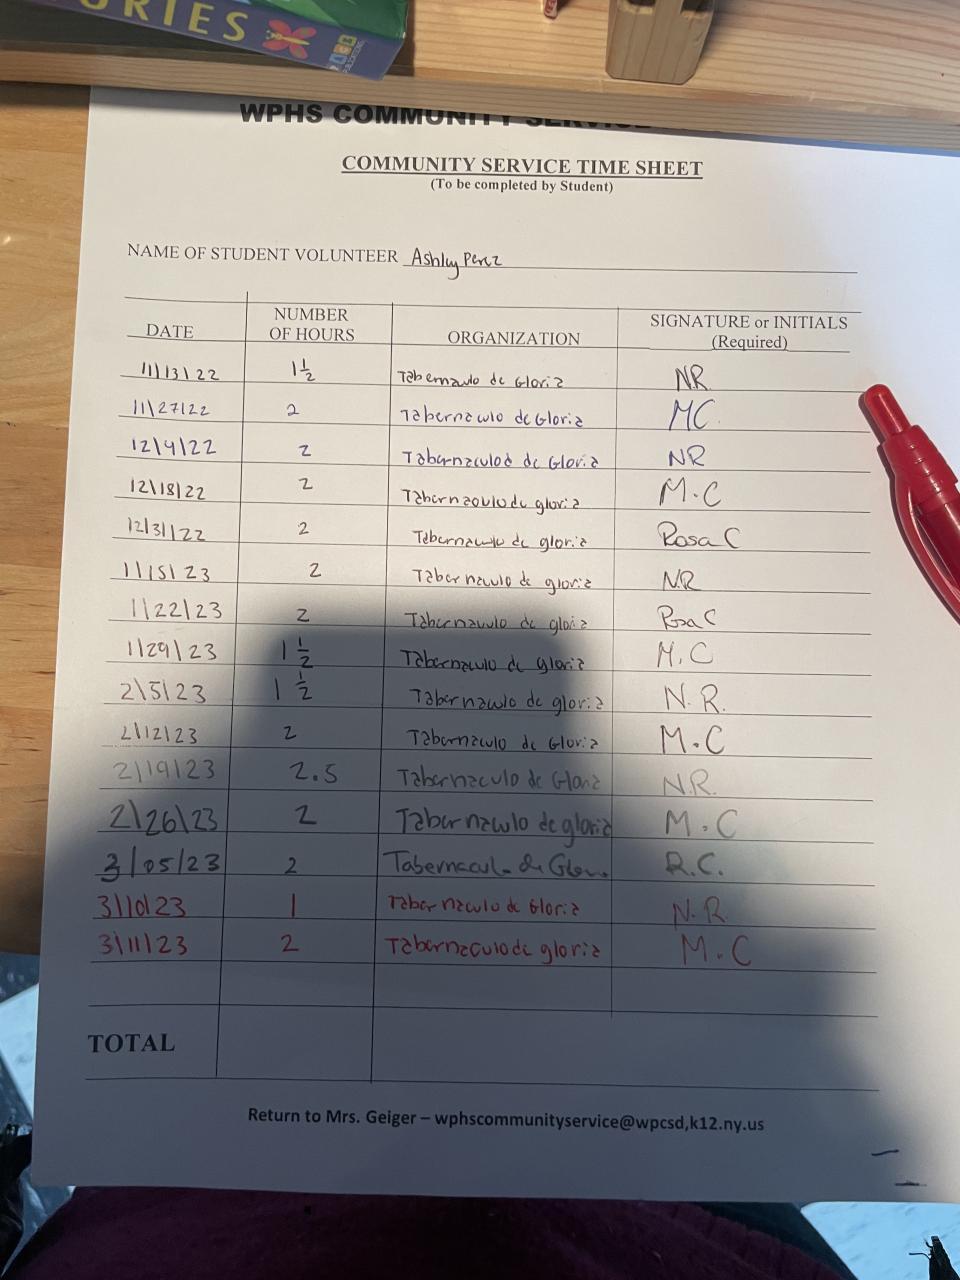 ORIES
WPHS COMMUNITY SERVICE
COMMUNITY SERVICE TIME SHEET
(To be completed by Student)
NAME OF STUDENT VOLUNTEER Ashley Perez
DATE NUMBER OF HOURS ORGANIZATION SIGNATURE or INITIALS (Required)
11/13/22 1 1/2 Tabernaulo de Gloria NR
11\27/22 2 Tabernaculo de Gloria MC
12/4/22 2 Tabernaculod de Gloria NR
12\18/22 2 Tabernaoulo de gloria M.C
12/31/22 2 Tabernaculo de gloria Rosa C
1/15/23 2 Tabernaculo de gloria N.R
1/22/23 2 Tabernaculo de gloria Rosa C
1/29/23 1 1/2 Tabernaculo de gloria M.C
2\5/23 1 1/2 Tabernaculo de gloria N.R.
2\12/23 2 Tabernaculo de Gloria M.C
2/19/23 2.5 Tabernaculo de Gloria N.R.
2\26\23 2 Tabernaculo de gloria M.C
3/05/23 2 Tabernaculo de Gloria R.C.
3/10/23 1 Tabernaculo de Gloria N.R.
3/11/23 2 Tabernaculo de gloria M.C
TOTAL
Return to Mrs. Geiger – wphscommunityservice@wpcsd,k12.ny.us